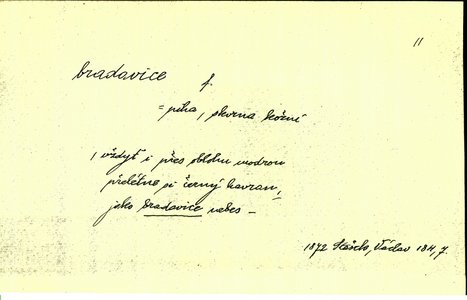 11
bradavice f.
= piha, skvrna kožní
, vždyť i přes oblohu modrou
přelétne si černý havran,
jako bradavice nebes –
1872 Václav 184, 7